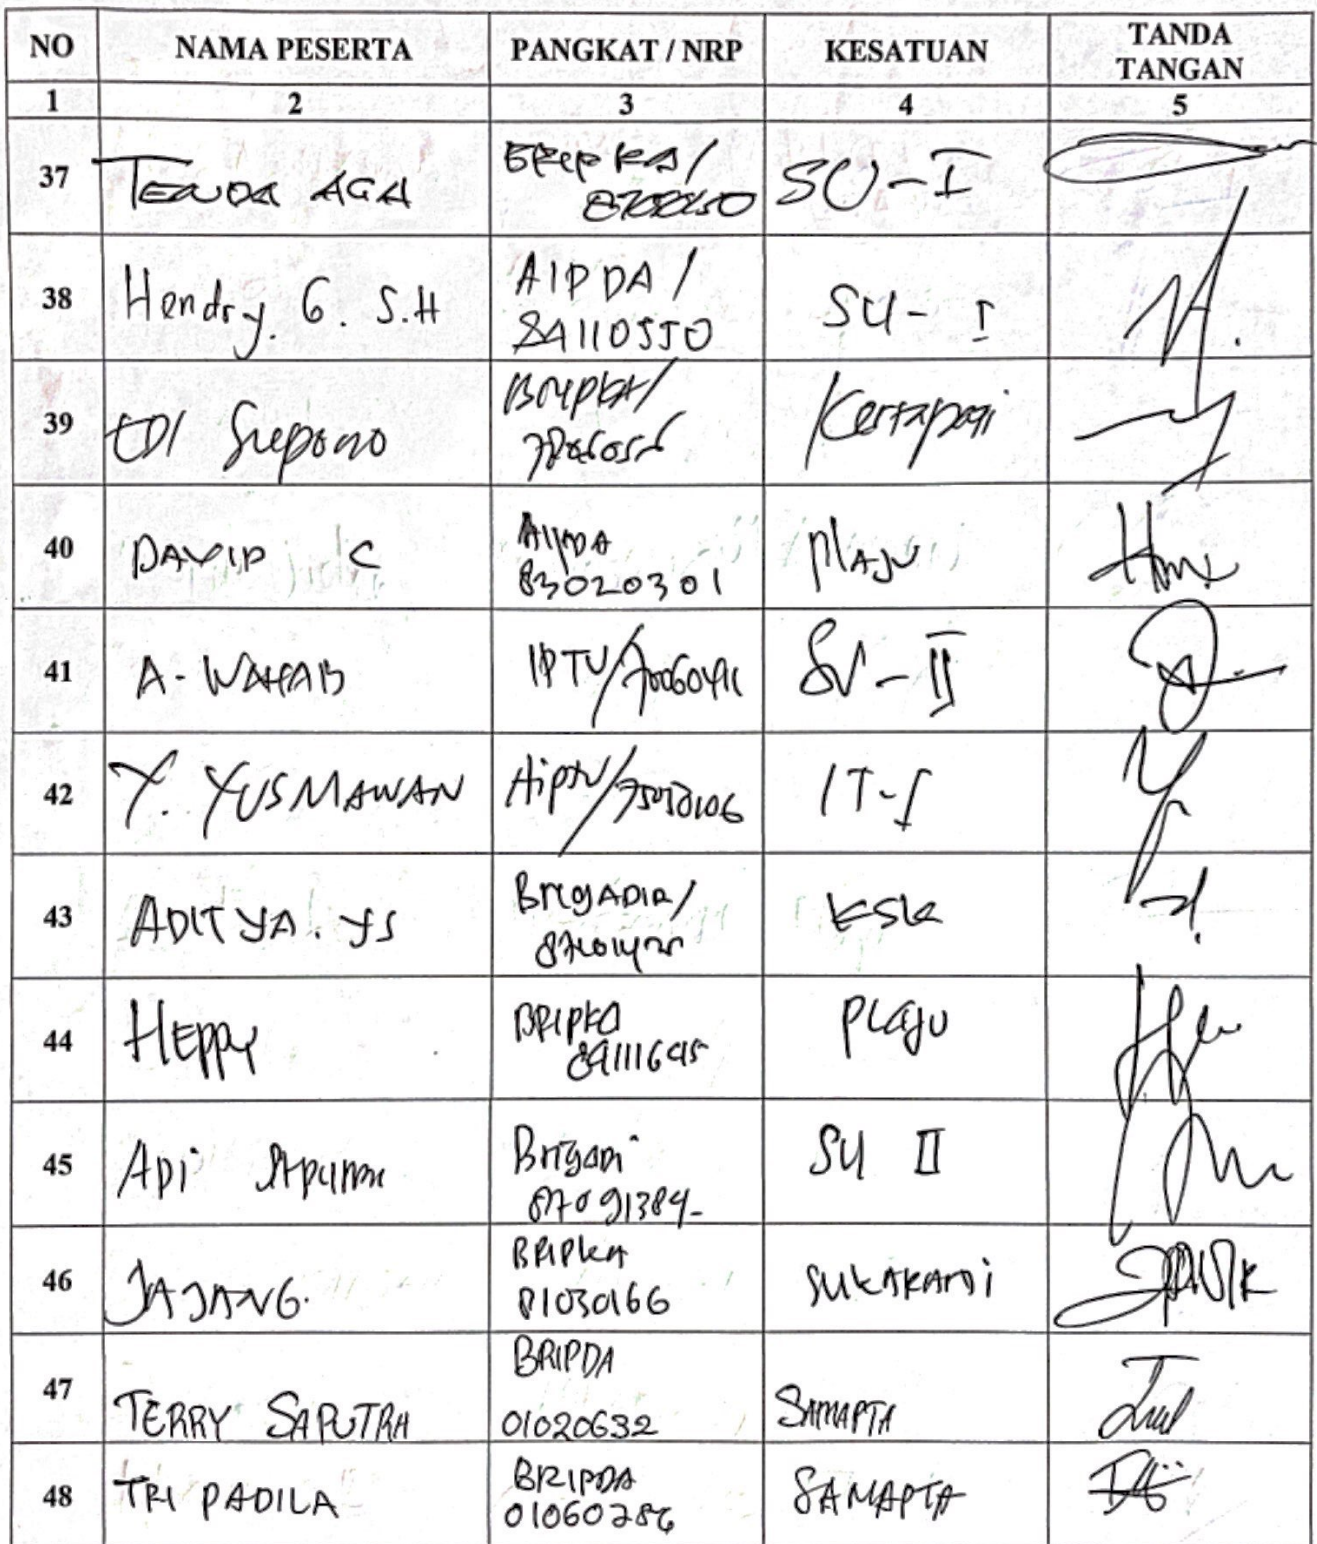 NO NAMA PESERTA PANGKAT / NRP KESATUAN TANDA TANGAN
1 2 3 4 5
37 TENDA AGA BRIPKA / SU-I
38 Hendry. G. S.H AIPDA / 84110550 SU- I
39 EDI Supono BRIPKA / Kertapati
40 DAVID C AIPDA 83020301 PLAJU
41 A. WAHAB IPTU/ SU-II
42 Y. YUSMAWAN AIPTU/ IT-I
43 ADITYA. YS BRIGADIR/ KSK
44 HEPPY BRIPKA PLAJU
45 ADI Brigadi 87091384 SU II
46 JAJANG. BRIPKA 81030166 SUKARAMI
47 TERRY SAPUTRA BRIPDA 01020632 SAMAPTA
48 TRI PADILA BRIPDA 01060286 SAMAPTA